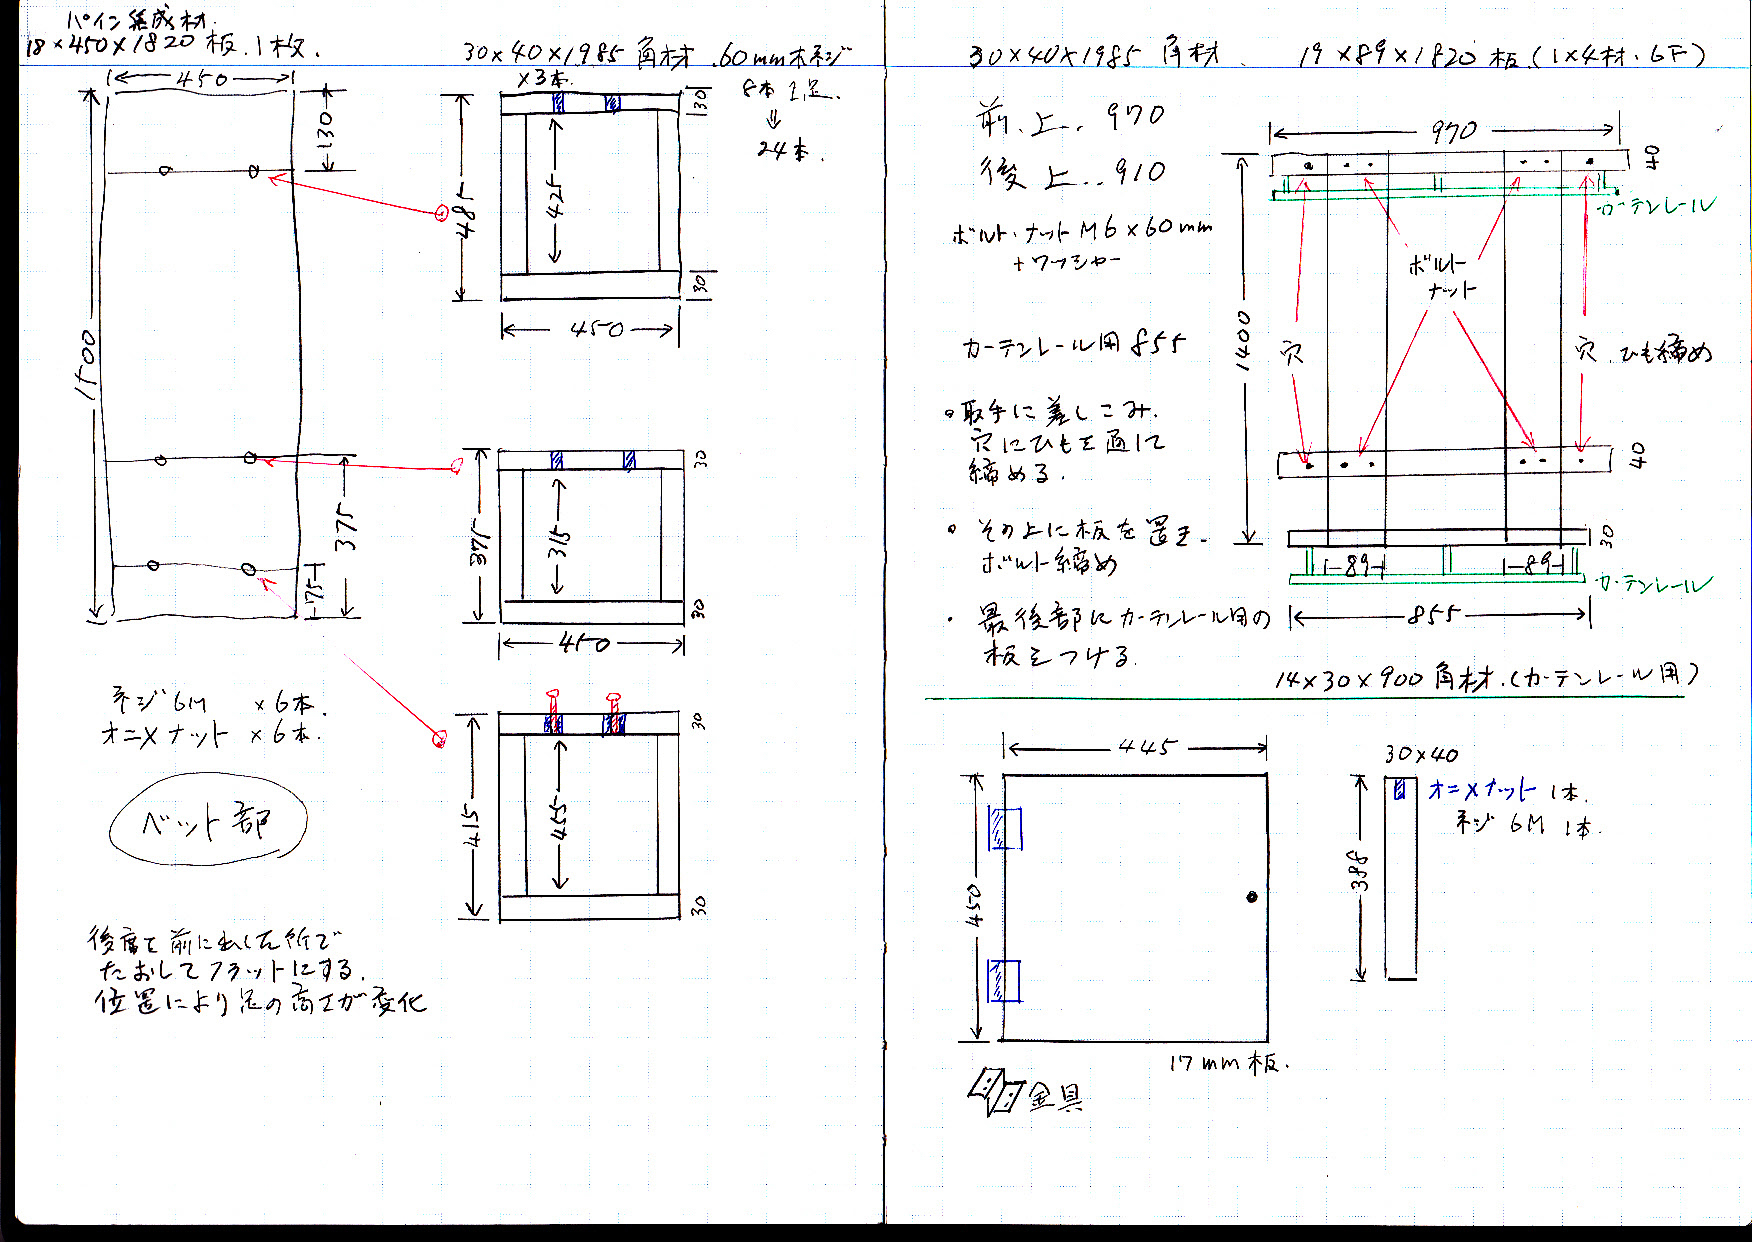 パイン集成材.
18×450×1820 板. 1枚.
450
130
1500
375
75
30×40×1985 角材 .60mm木ネジ
×3本.
8本 1足.
⇓
24本.
30
485
425
30
450
30
375
315
30
450
30
415
455
30
ネジ 6M ×6本.
オニメナット ×6本.
ベット部
後席を前に出した所で
たおしてフラットにする.
位置により足の高さが変化
30×40×1985 角材.
19×89×1820 板 (1×4材. 6F)
前. 上.. 970
後 上.. 910
ボルト・ナット M6×60mm
+ワッシャー
カーテンレール用 855
・取手に差しこみ.
穴にひもを通して
締める.
・その上に板を置き.
ボルト締め
・最後部にカーテンレール用の
板をつける.
970
40
カーテンレール
1400
ボルト
ナット
穴
穴. ひも締め
40
30
89
89
カーテンレール
855
14×30×900 角材.(カーテンレール用)
445
450
17mm 板.
金具
30×40
オニメナット 1本.
ネジ 6M 1本.
388